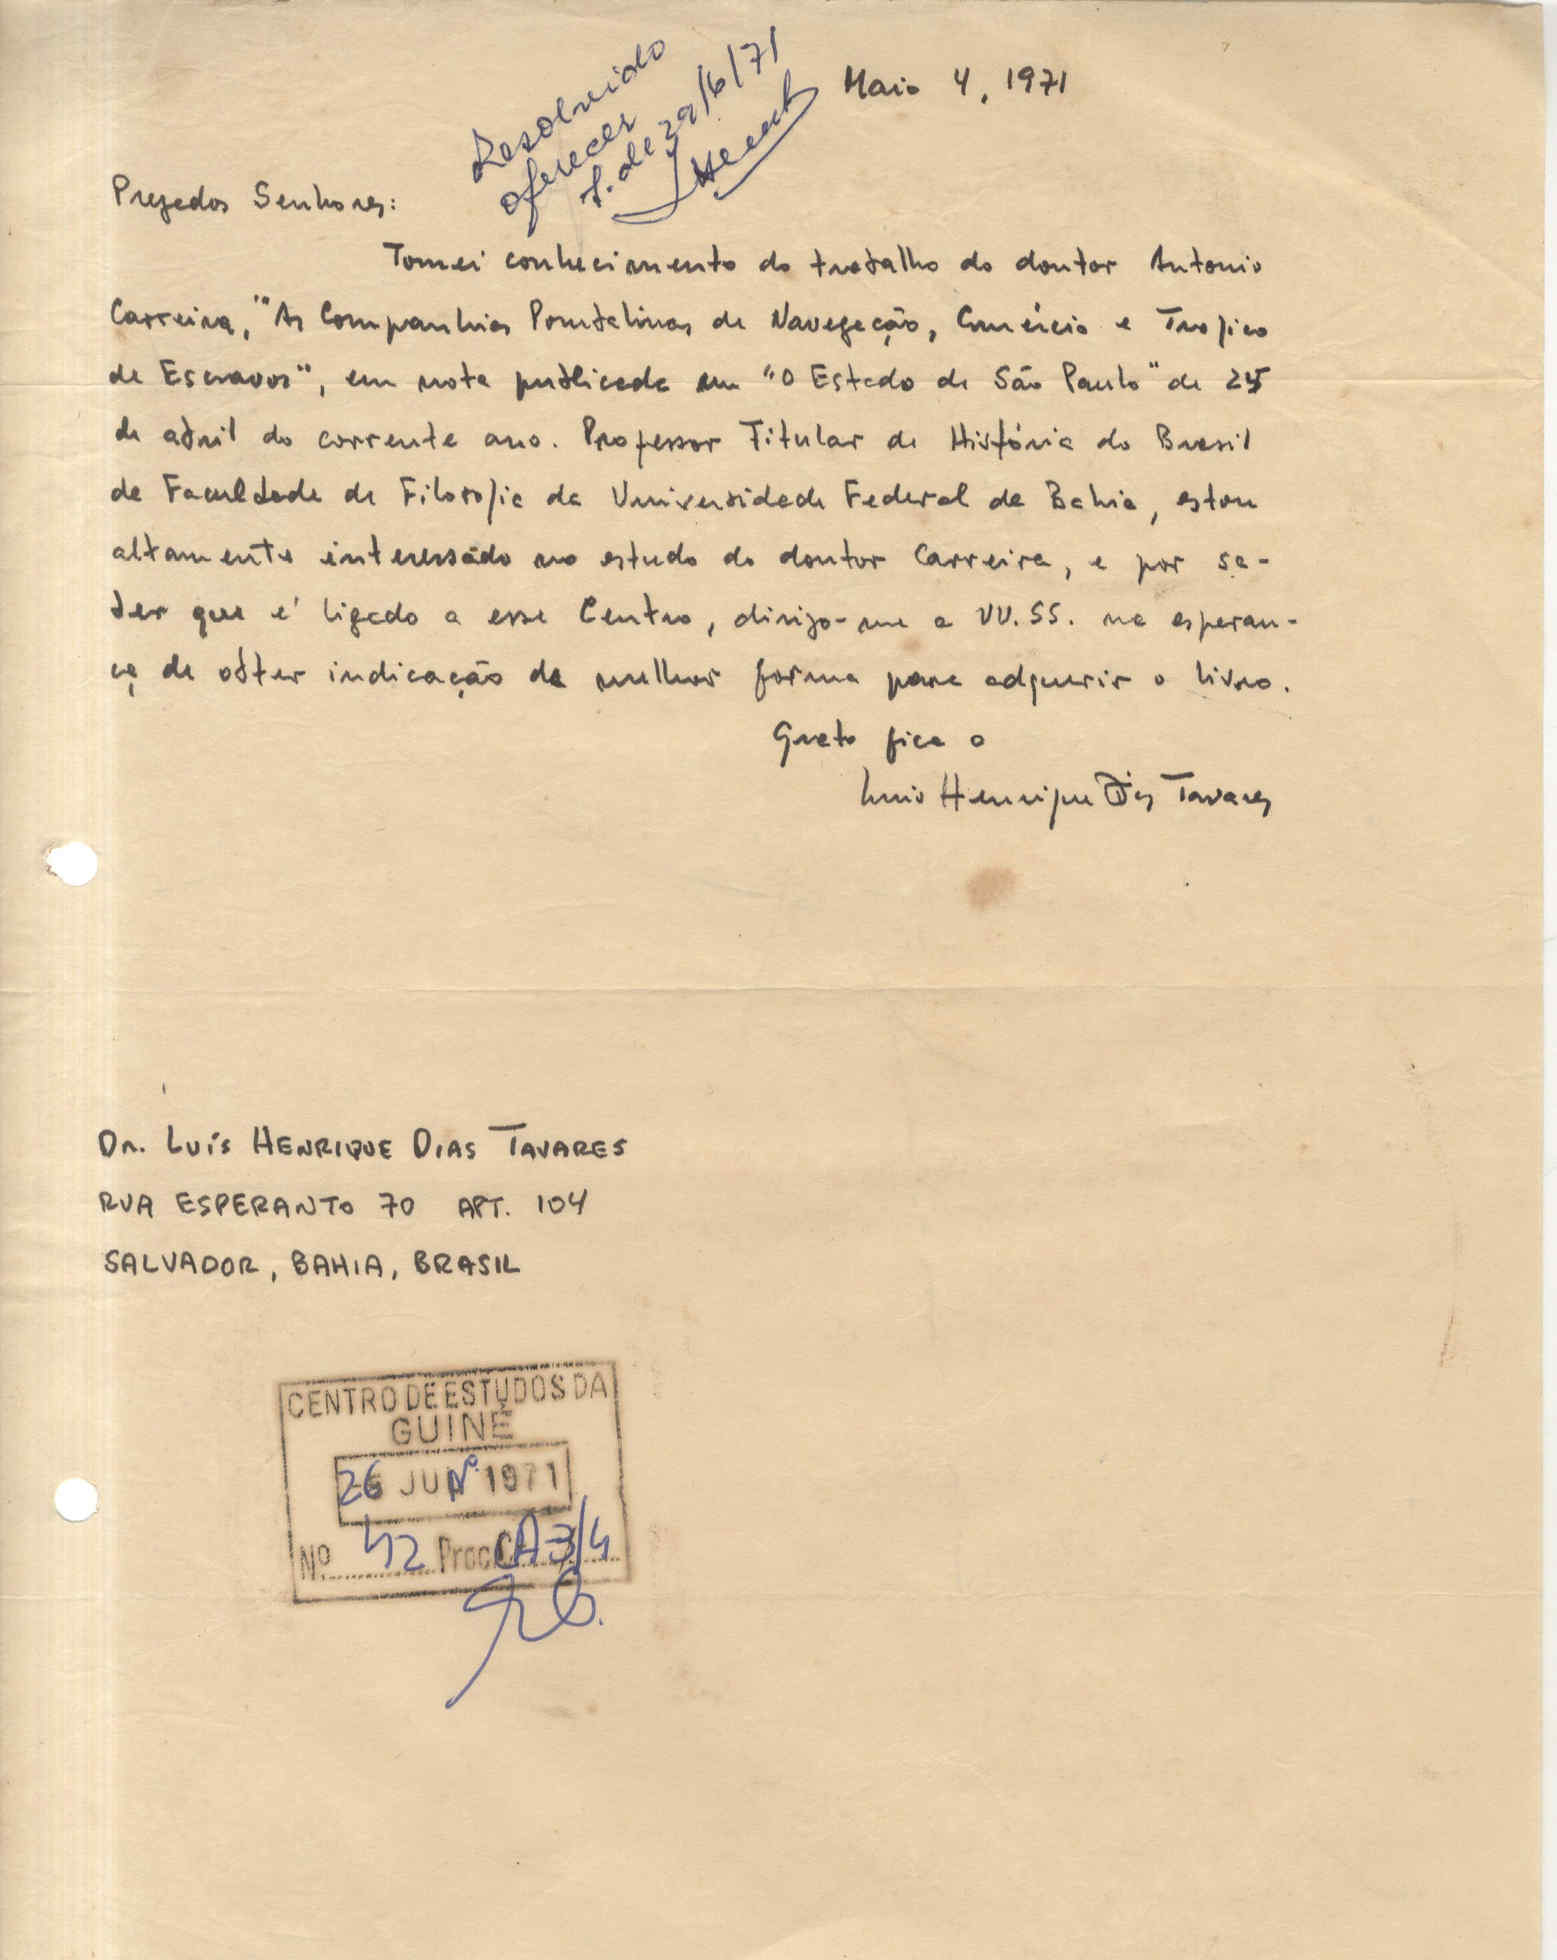 Maio 4, 1971
Resolvido
oferecer
S. de 29/6/71
Prezados Senhores:
Tomei conhecimento do trabalho do doutor Antonio
Carreira, "As Companhias Pombalinas de Navegação, Comércio e Trafico
de Escravos", em nota publicada em "O Estado de São Paulo" de 25
de abril do corrente ano. Professor Titular de História do Brasil
da Faculdade de Filosofia da Universidade Federal da Bahia, estou
altamente interessado no estudo do doutor Carreira, e por sa-
ber que é ligado a esse Centro, dirijo-me a VV.SS. na esperan-
ça de obter indicação da melhor forma para adquirir o livro.
Grato fica o
Luis Henrique Dias Tavares
DR. LUÍS HENRIQUE DIAS TAVARES
RUA ESPERANTO 70 APT. 104
SALVADOR, BAHIA, BRASIL
CENTRO DE ESTUDOS DA
GUINÉ
26 JUN 1971
Nº 42 Proc CA 3/4